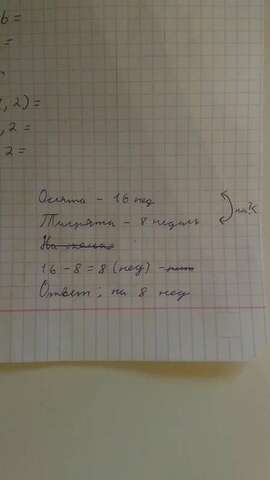 6 =
=
, 2) =
, 2 =
2 =
Ослята - 16 нед
Тигрята - 8 недель
на ?
На сколько
16 - 8 = 8 (нед) -
Ответ: на 8 нед